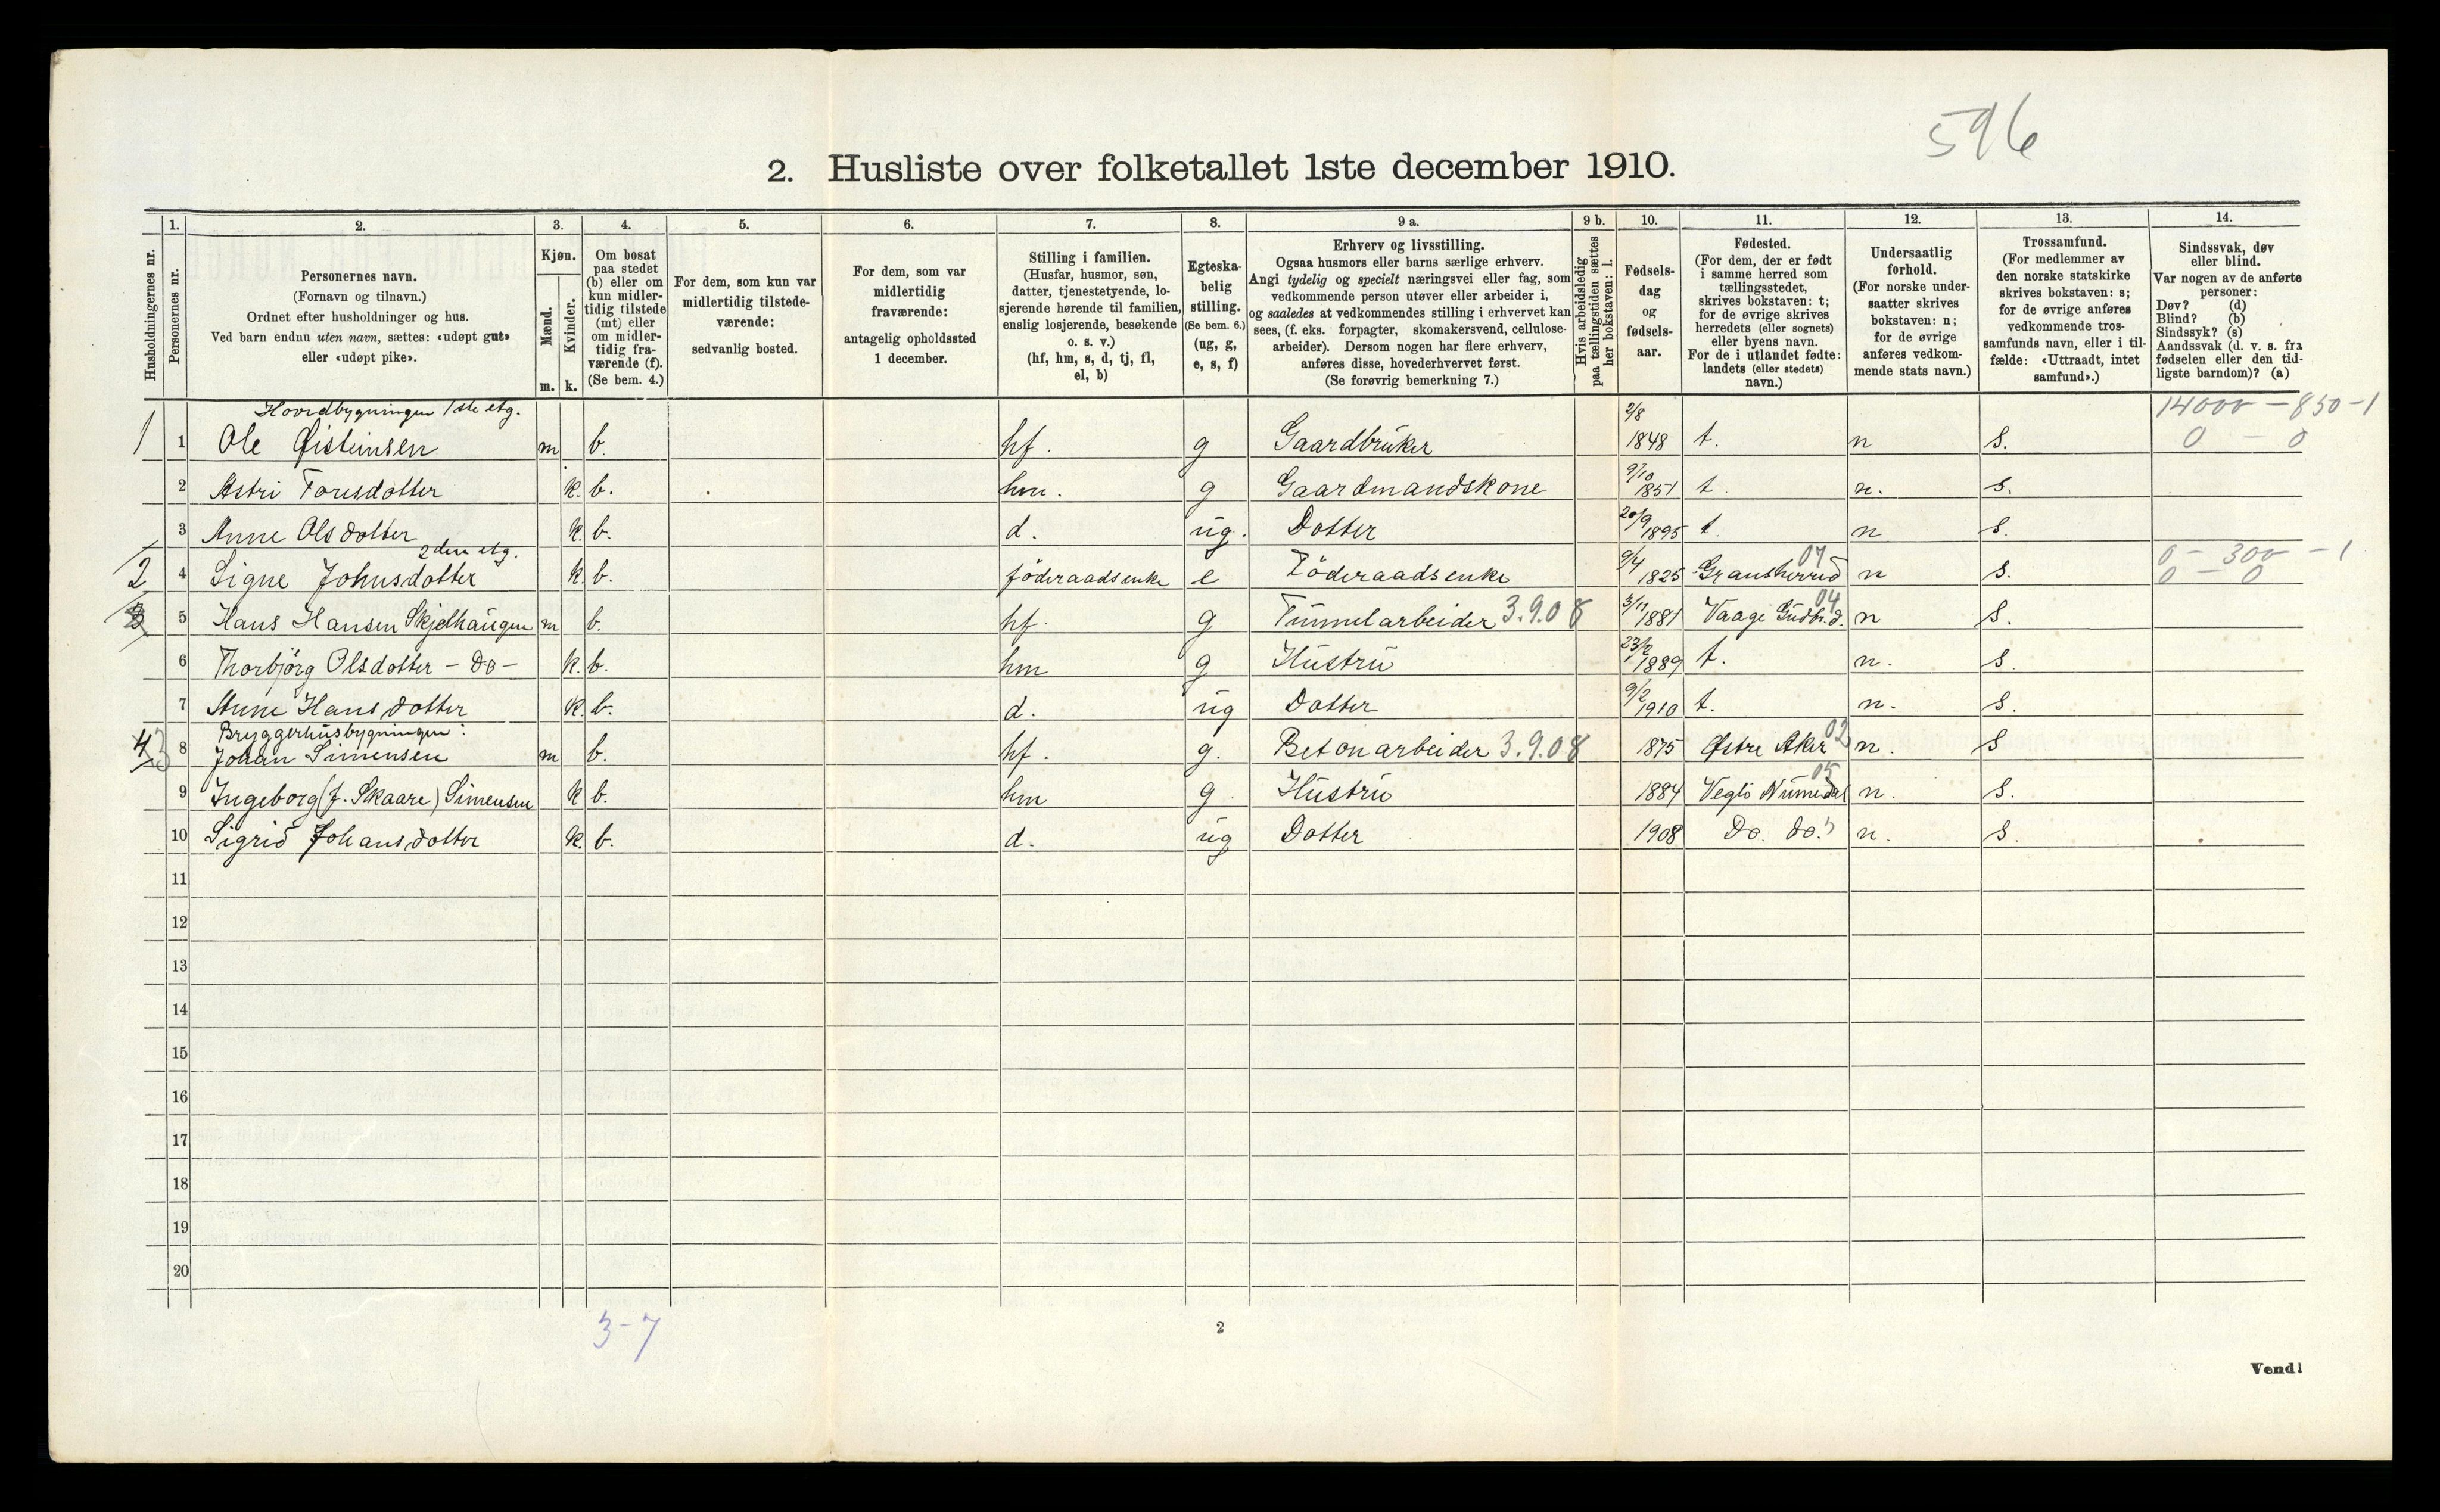 596
2. Husliste over folketallet 1ste december 1910.
Husholdningernes nr.
1.
Personernes nr.
2.
Personernes navn.
(Fornavn og tilnavn.)
Ordnet efter husholdninger og hus.
Ved barn endnu uten navn, sættes: «udøpt gut»
eller «udøpt pike».
3.
Kjøn.
Mænd.
Kvinder.
m. k.
4.
Om bosat
paa stedet
(b) eller om
kun midler-
tidig tilstede
(mt) eller
om midler-
tidig fra-
værende (f).
(Se bem. 4.)
5.
For dem, som kun var
midlertidig tilstede-
værende:
sedvanlig bosted.
6.
For dem, som var
midlertidig
fraværende:
antagelig opholdssted
1 december.
7.
Stilling i familien.
(Husfar, husmor, søn,
datter, tjenestetyende, lo-
sjerende hørende til familien,
enslig losjerende, besøkende
o. s. v.)
(hf, hm, s, d, tj, fl,
el, b)
8.
Egteska-
belig
stilling.
(Se bem. 6.)
(ug, g,
e, s, f)
9 a.
Erhverv og livsstilling.
Ogsaa husmors eller barns særlige erhverv.
Angi tydelig og specielt næringsvei eller fag, som
vedkommende person utøver eller arbeider i,
og saaledes at vedkommendes stilling i erhvervet kan
sees, (f. eks. forpagter, skomakersvend, cellulose-
arbeider). Dersom nogen har flere erhverv,
anføres disse, hovederhvervet først.
(Se forøvrig bemerkning 7.)
9 b.
Hvis arbeidsledig
paa tællingstiden sættes
her bokstaven: l.
10.
Fødsels-
dag
og
fødsels-
aar.
11.
Fødested.
(For dem, der er født
i samme herred som
tællingsstedet,
skrives bokstaven: t;
for de øvrige skrives
herredets (eller sognets)
eller byens navn.
For de i utlandet fødte:
landets (eller stedets)
navn.)
12.
Undersaatlig
forhold.
(For norske under-
saatter skrives
bokstaven: n;
for de øvrige
anføres vedkom-
mende stats navn.)
13.
Trossamfund.
(For medlemmer av
den norske statskirke
skrives bokstaven: s;
for de øvrige anføres
vedkommende tros-
samfunds navn, eller i til-
fælde: «Uttraadt, intet
samfund».)
14.
Sindssvak, døv
eller blind.
Var nogen av de anførte
personer:
Døv? (d)
Blind? (b)
Sindssyk? (s)
Aandssvak (d. v. s. fra
fødselen eller den tid-
ligste barndom)? (a)
Hovedbygningen 1ste etg. 14000 - 850 - 1
1 1 Ole Øisteinsen m b. hf. g Gaardbruker 2/8 1848 t. n s. 0 - 0
2 Astri Toresdotter k. b. hm. g Gaardmandskone 9/10 1851 t n. s.
3 Anne Olsdotter k. b. d. ug. Dotter 20/9 1895 t. n s.
2den etg. 0 - 300 - 1
2 4 Signe Johnsdotter k. b. föderaadsenke e Föderaadsenke 9/4 1825 Gransherred 07 n s. 0 - 0
3 5 Hans Hansen Skjelhaugen m b. hf. g Tunnelarbeider 3.9.08 3/11 1881 Vaage Gudbr.d. 04 n s.
6 Thorbjörg Olsdotter - do - k. b. hm g Hustru 23/2 1889 t. n. s.
7 Anne Hansdotter k. b. d. ug Dotter 9/2 1910 t. n. s.
Bryggerhusbygningen:
4 3 8 Johan Simensen m b. hf. g. Betonarbeider 3.9.08 1875 Østre Aker 02 n. s
9 Ingeborg (f. Skaare) Simensen k b. hm g. Hustru 1884 Veglö Numedal 05 n. s.
10 Sigrid Johansdotter k. b. d. ug Dotter 1908 Do. do. n. s.
11
12
13
14
15
16
17
18
19
20
3-7
2
Vend!